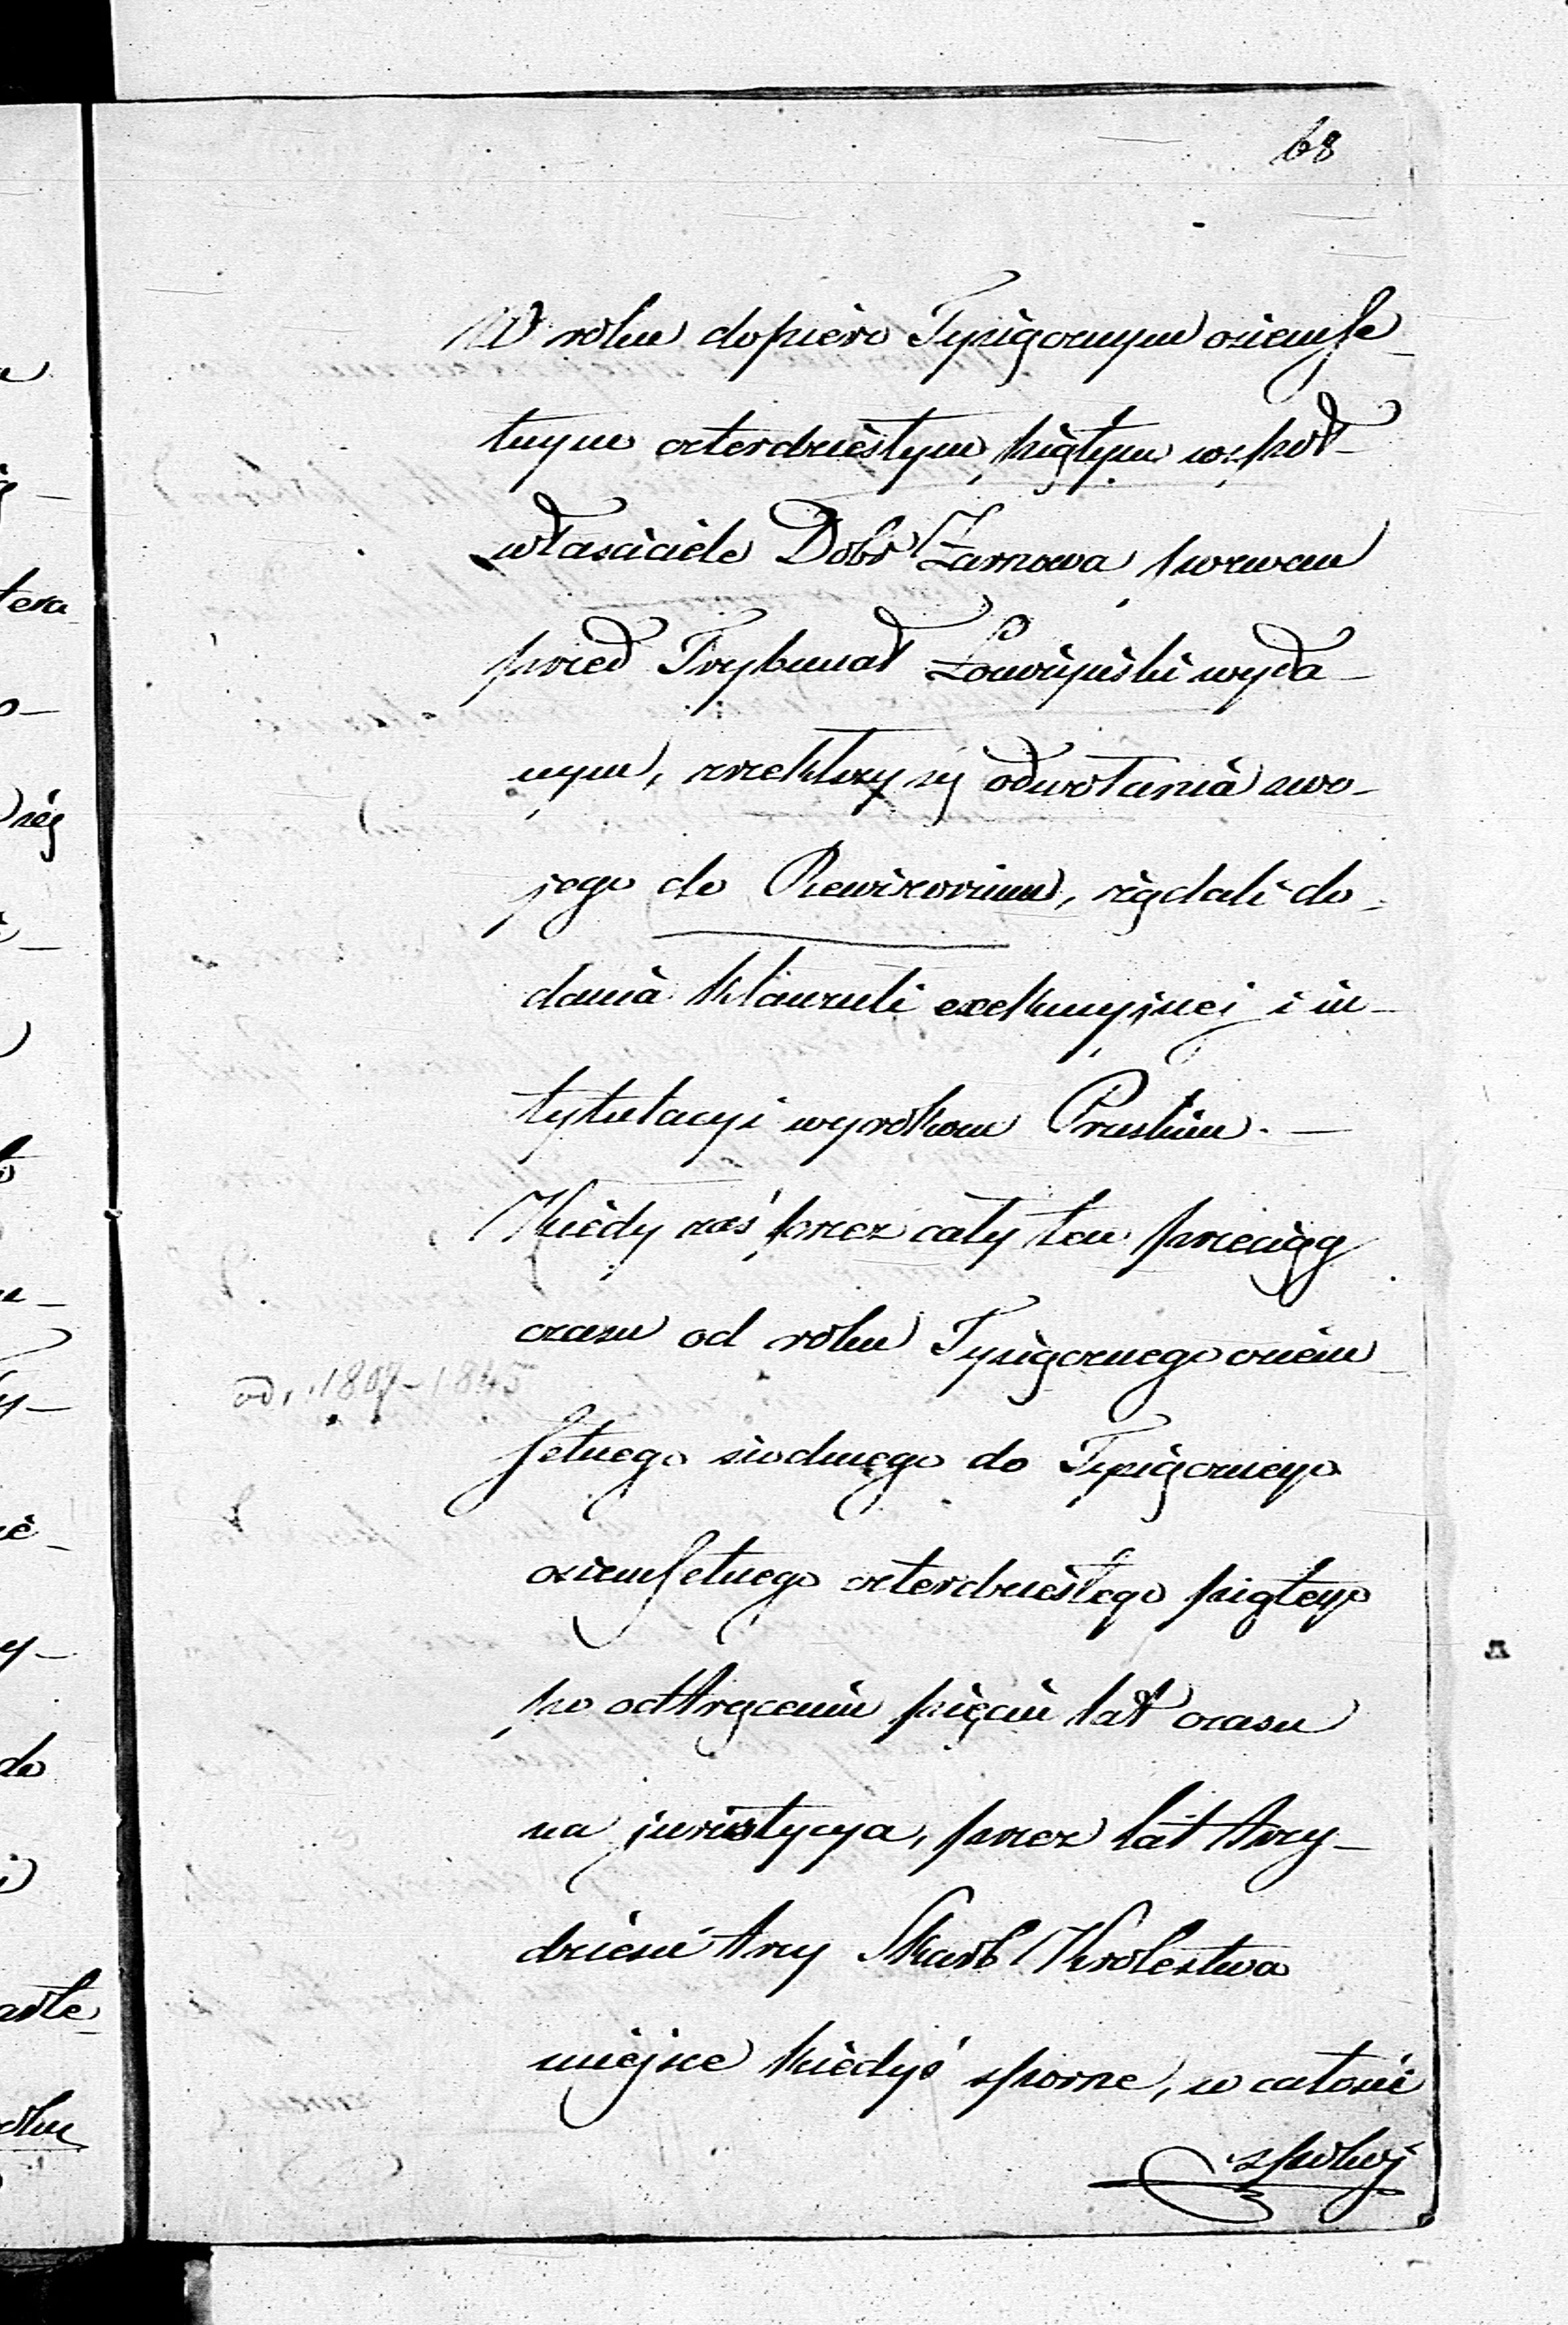 68
W roku dopiero Tysiącznym ośiemse
tnym czterdziestym piątym współ-
właściciele Dobr Żarnowa pozwem
przed Trybunał Łomżyński wyda-
nym, zrzekłszy się odwołania swo-
jego do Rewizorium, żądali do-
dania klauzuli exekucyjnej i in-
tytulacyi wyrokom Pruskim. —
Kiedy zaś przez cały ten przeciąg
czasu od roku Tysiącznego ośiem
od. 1807-1845
setnego siodmego do Tysiącznego
ośiemsetnego czterdziestego piątego
po odtrąceniu pięciu lat czasu
na juristycya, przez lat trzy-
dzieści trzy Skarb Krolestwa
miejsce kiedyś sporne, w całości
spokoj